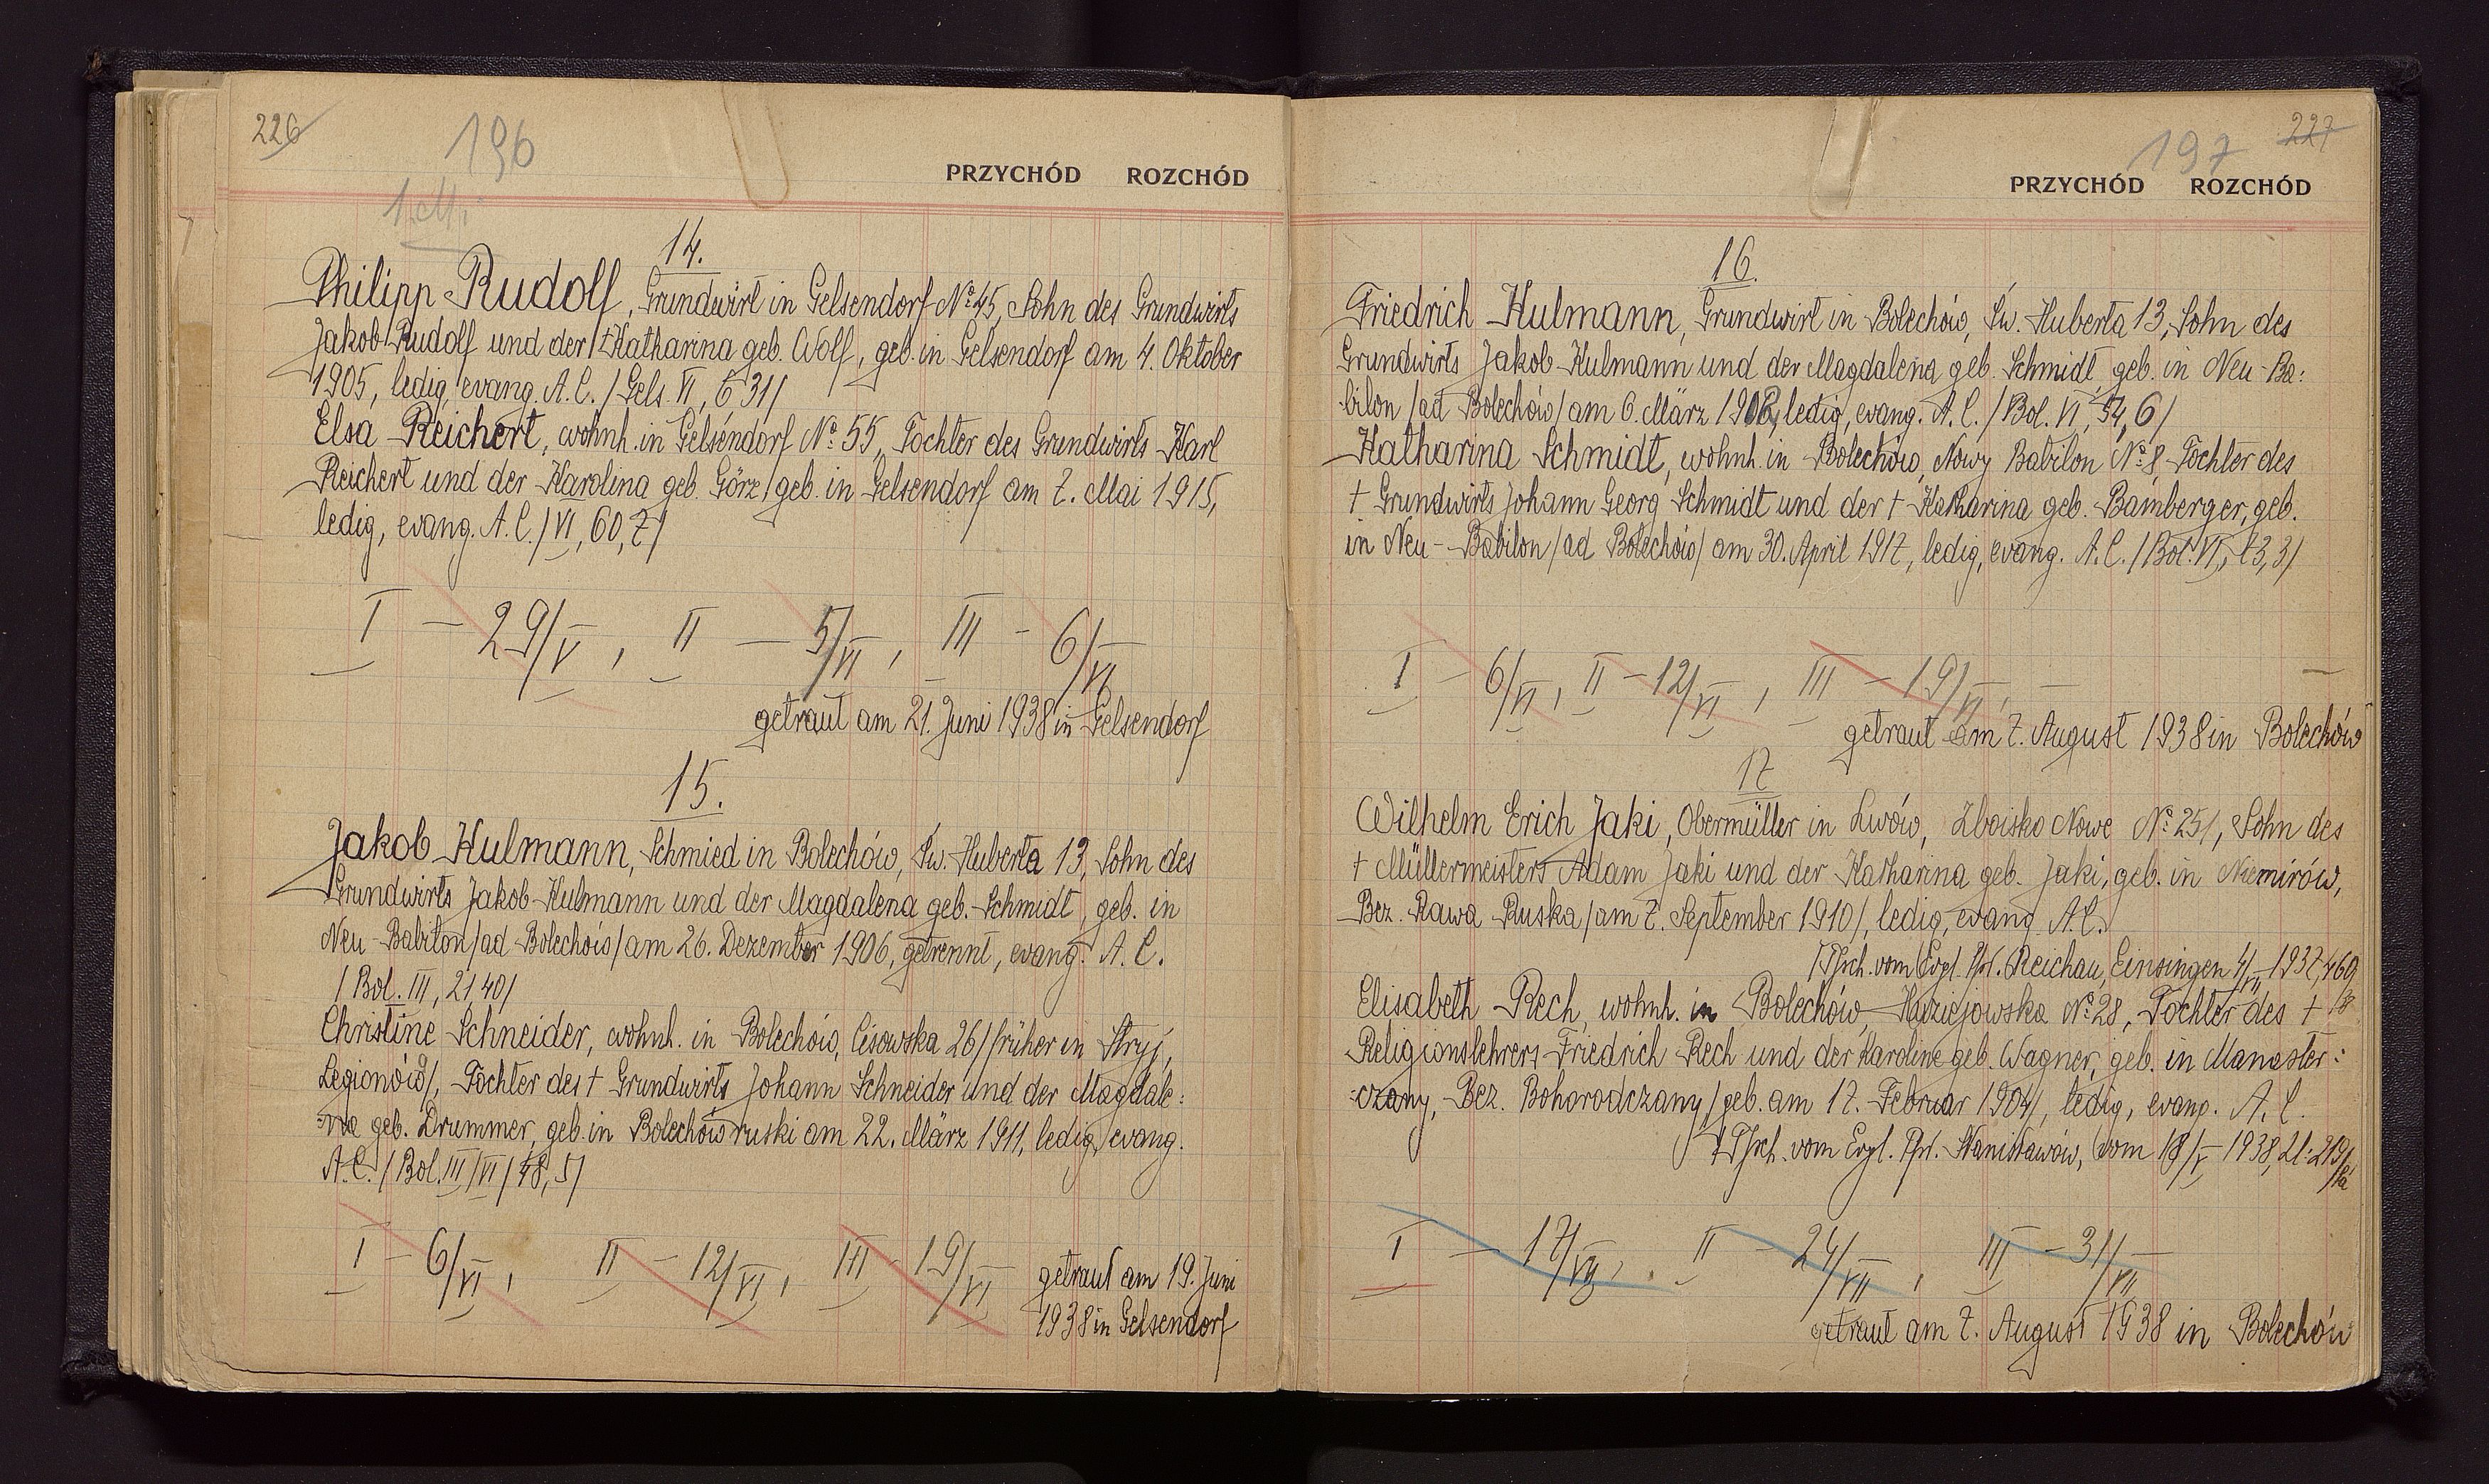 226
196
PRZYCHÓD ROZCHÓD
14.
Philipp Rudolf, Grundwirt in Gelsendorf No 45, Sohn des Grundwirts
Jakob Rudolf und der †Katharina geb. Wolf, geb. in Gelsendorf am 4. Oktober
1905, ledig, evang. A.C. / Gels. VI, 6 31/
Elsa Reichert, wohnh. in Gelsendorf No 55, Tochter des Grundwirts Karl
Reichert und der Karolina geb. Görz, geb. in Gelsendorf am 7. Mai 1915,
ledig, evang. A.C. / VI, 60, 7/
I – 29/V, II – 5/VI, III – 6/VI
getraut am 21. Juni 1938 in Gelsendorf
15.
Jakob Kulmann, Schmied in Bolechów, Św. Huberta 13, Sohn des
Grundwirts Jakob Kulmann und der Magdalena geb. Schmidt, geb. in
Neu-Babilon /ad Bolechów/ am 26. Dezember 1906, getrennt, evang. A.C.
/ Bol. III, 21,40/
Christine Schneider, wohnh. in Bolechów, Cisowska 26 / früher in Stryj,
Legionów/, Tochter des † Grundwirts Johann Schneider und der Magdale:
:na geb. Drummer, geb. in Bolechów ruski am 22. März 1911, ledig, evang.
A.C. / Bol. III/VI/ 48, 5/
I – 6/VI, II – 12/VI, III – 19/VI getraut am 19. Juni
1938 in Gelsendorf
197
227
PRZYCHÓD ROZCHÓD
16.
Friedrich Kulmann, Grundwirt in Bolechów, Św. Huberta 13, Sohn des
Grundwirts Jakob Kulmann und der Magdalena geb. Schmidt, geb. in Neu-Ba:
:bilon /ad Bolechów/ am 6. März ledig, evang. A.C. / Bol. VI, 54, 6/
Katharina Schmidt, wohnh. in Bolechów, Nowy Babilon No 8, Tochter des
† Grundwirts Johann Georg Schmidt und der † Katharina geb. Bamberger, geb.
in Neu-Babilon /ad Bolechów/ am 30. April 1917, ledig, evang. A.C. / Bol. VI, 3,3/
I – 6/VI, II – 12/VI, III – 19/VI, –
getraut am 7. August 1938 in Bolechów
17
Wilhelm Erich Jaki, Obermüller in Lwów, Zboisko Nowe No 251, Sohn des
† Müllermeisters Adam Jaki und der Katharina geb. Jaki, geb. in Niemirów,
Bez. Rawa Ruska / am 7. September 1910/, ledig, evang. A.C.
/Tfsch. vom Evgl. Pfrt. Reichau, Einsingen 4/VII 1937, 460/
Elisabeth Rech, wohnh. in Bolechów, No 28, Tochter des †
Religionslehrers Friedrich Rech und der Karoline geb. Wagner, geb. in Manaster:
:czany, Bez. Bohorodczany / geb. am 17. Februar 1904/, ledig, evang. A.C.
/Tfsch. vom Evgl. Pfrt. Stanisławów, vom 18/V 1938, Zl: 219/
I – 17/VII, II – 24/VII, III – 31/VII
getraut am 7. August 1938 in Bolechów